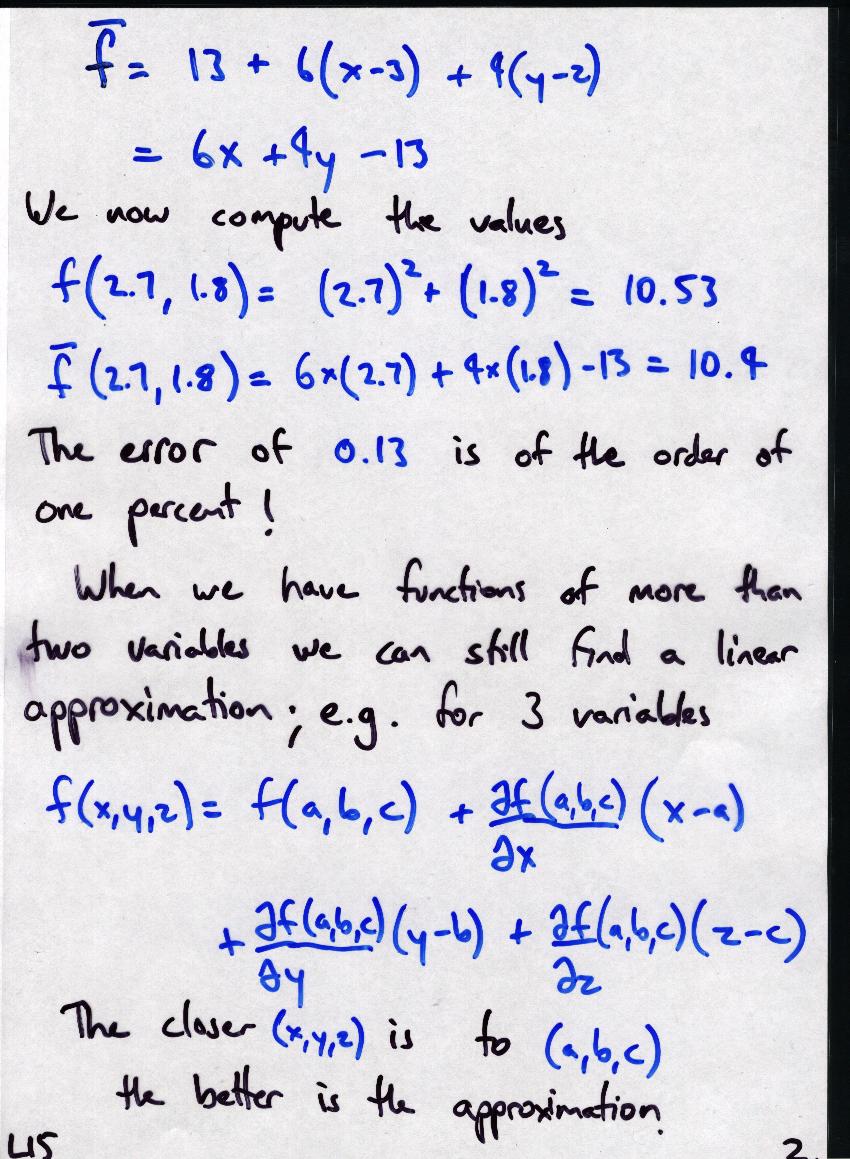 f̅ = 13 + 6(x-3) + 4(y-2)
= 6x + 4y - 13
We now compute the values
f(2.7, 1.8) = (2.7)² + (1.8)² = 10.53
f̅ (2.7, 1.8) = 6×(2.7) + 4×(1.8) - 13 = 10.4
The error of 0.13 is of the order of
one percent!
When we have functions of more than
two variables we can still find a linear
approximation; e.g. for 3 variables
f(x,y,z) = f(a,b,c) + ∂f(a,b,c)/∂x (x-a)
+ ∂f(a,b,c)/∂y (y-b) + ∂f/∂z (a,b,c)(z-c)
The closer (x,y,z) is to (a,b,c)
the better is the approximation.
L15 2.